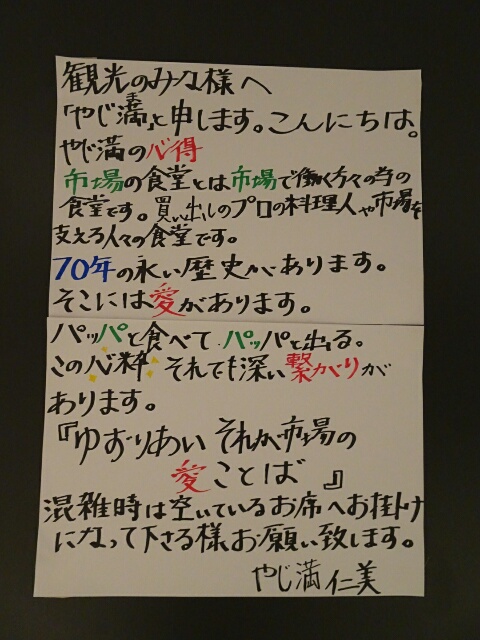 観光のみな様へ
「やじ満」と申します。こんにちは。
やじ満の心得
市場の食堂とは市場で働く方々の為の
食堂です。買い出しのプロの料理人や市場を
支える人々の食堂です。
70年の永い歴史があります。
そこには愛があります。
パッパと食べてパッパと出る。
この心粋 それでも深い繋がりが
あります。
『ゆずりあい それが市場の
愛ことば 』
混雑時は空いているお席へお掛け
になって下さる様お願い致します。
やじ満 仁美